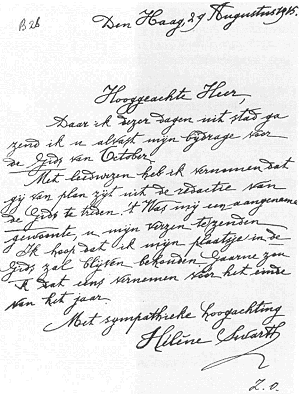 B 26
Den Haag, 29 Augustus 1915.
Hooggeachte Heer,
Daar ik dezer dagen uit stad ga
zend ik u alvast mijn bijdrage voor
de Gids van October.
Met leedwezen heb ik vernomen dat
gij van plan zijt uit de redactie van
de Gids te treden. 't Was mij een aangename
gewoonte, u mijn verzen te zenden
Ik hoop dat ik mijn plaatsje in de
Gids zal blijven behouden. Gaarne zou
ik dat eens vernemen voor het einde
van het jaar.
Met sympathieke hoogachting
Hélène Swarth
Z.O.